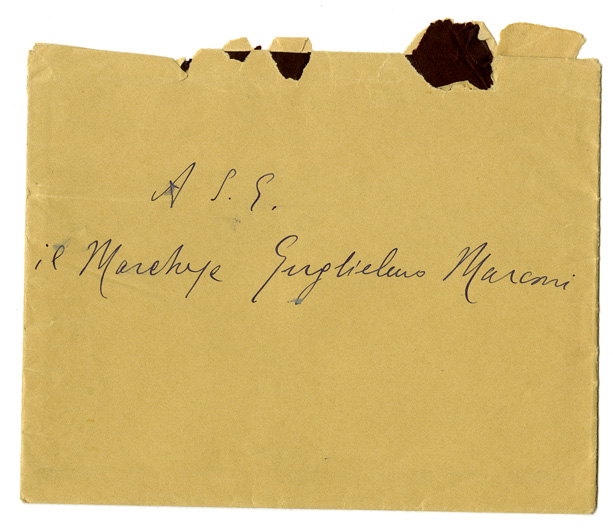 A S. E.
il Marchese Guglielmo Marconi